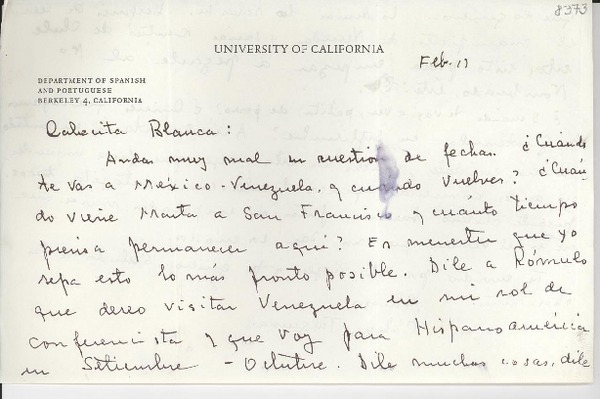 8373
UNIVERSITY OF CALIFORNIA
Feb. 17
DEPARTMENT OF SPANISH
AND PORTUGUESE
BERKELEY 4, CALIFORNIA
Cabecita Blanca:
Andas muy mal en cuestión de fechas. ¿Cuándo
te vas a México-Venezuela, y cuando vuelves? ¿Cuán-
do viene Marta a San Francisco y cuánto tiempo
piensa permanecer aquí? Es menester que yo
sepa esto lo más pronto posible. Dile a Rómulo
que deseo visitar Venezuela en mi rol de
conferencista y que voy para Hispanoamérica
en Setiembre - Octubre. Dile muchas cosas, dile